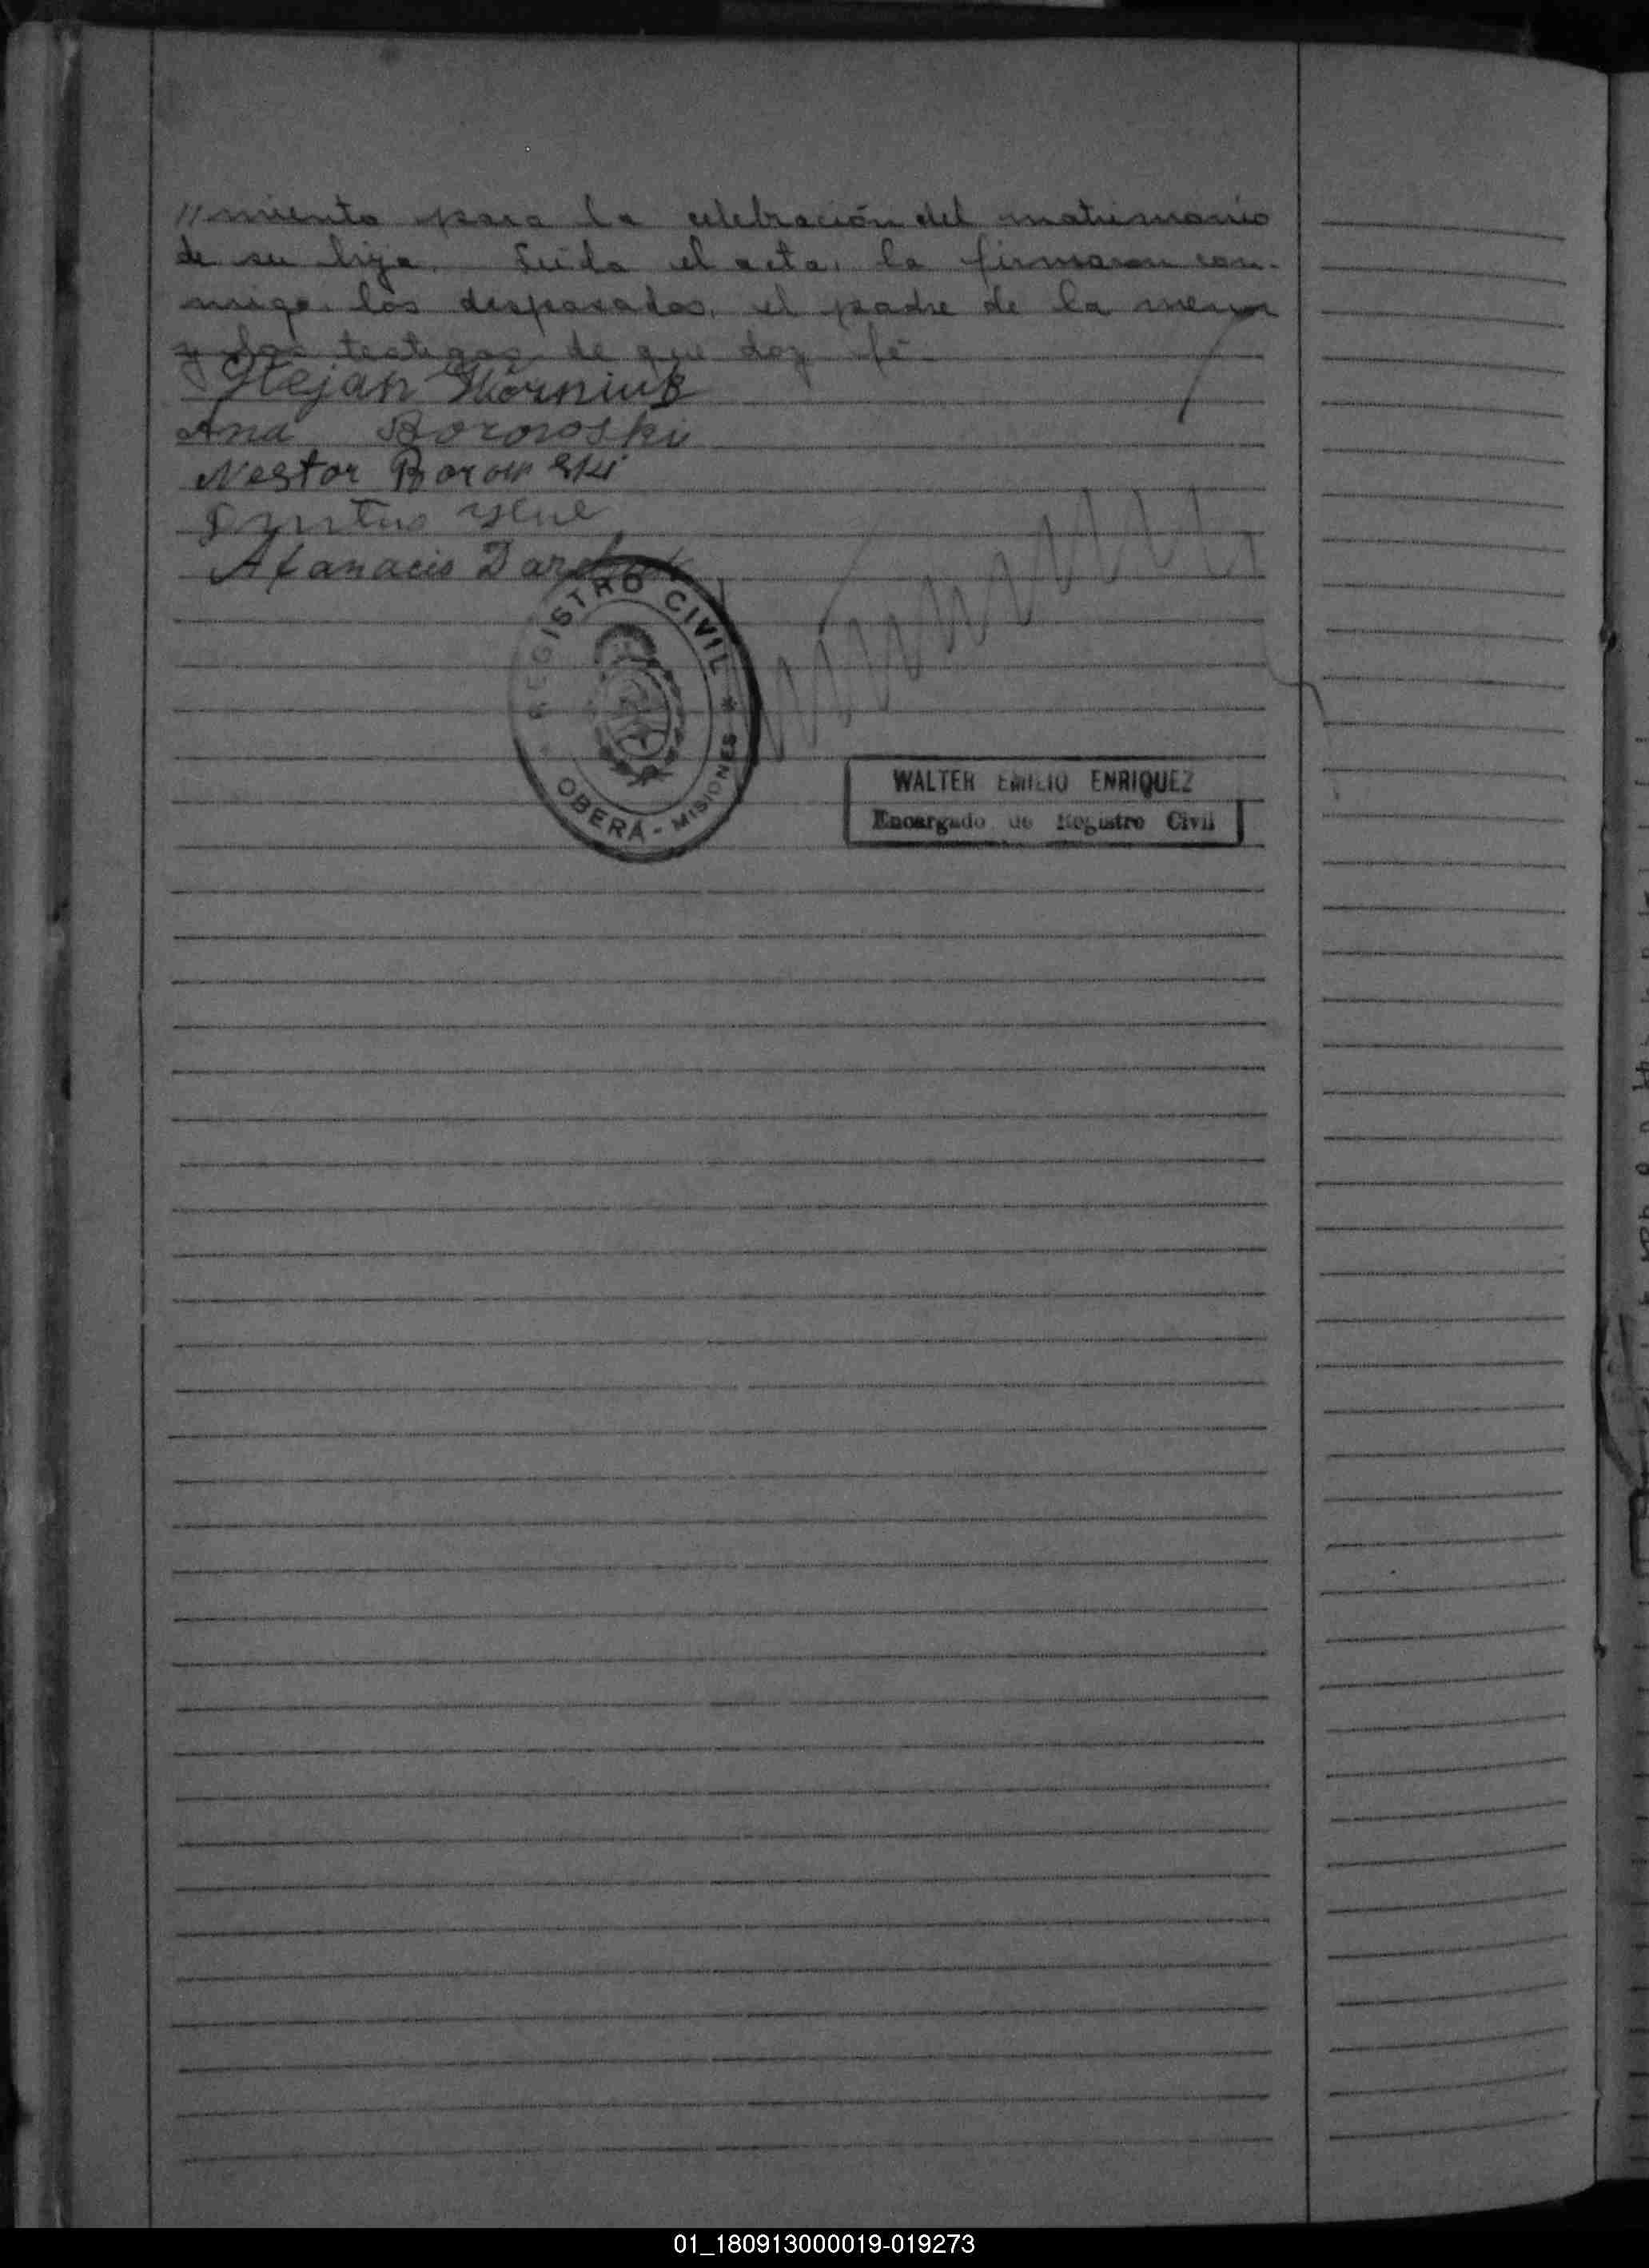 // miento para la celebración del matrimonio
de su hija. Leída el acta, la firmaron con-
migo los desposados, el padre de la menor
y los testigos de que doy fé.
Stefan Korniuk
Ana Borowski
Nestor Borowski
Afanacio
REGISTRO CIVIL * OBERÁ - MISIONES *
WALTER EMILIO ENRIQUEZ
Encargado de Registro Civil
01_180913000019-019273